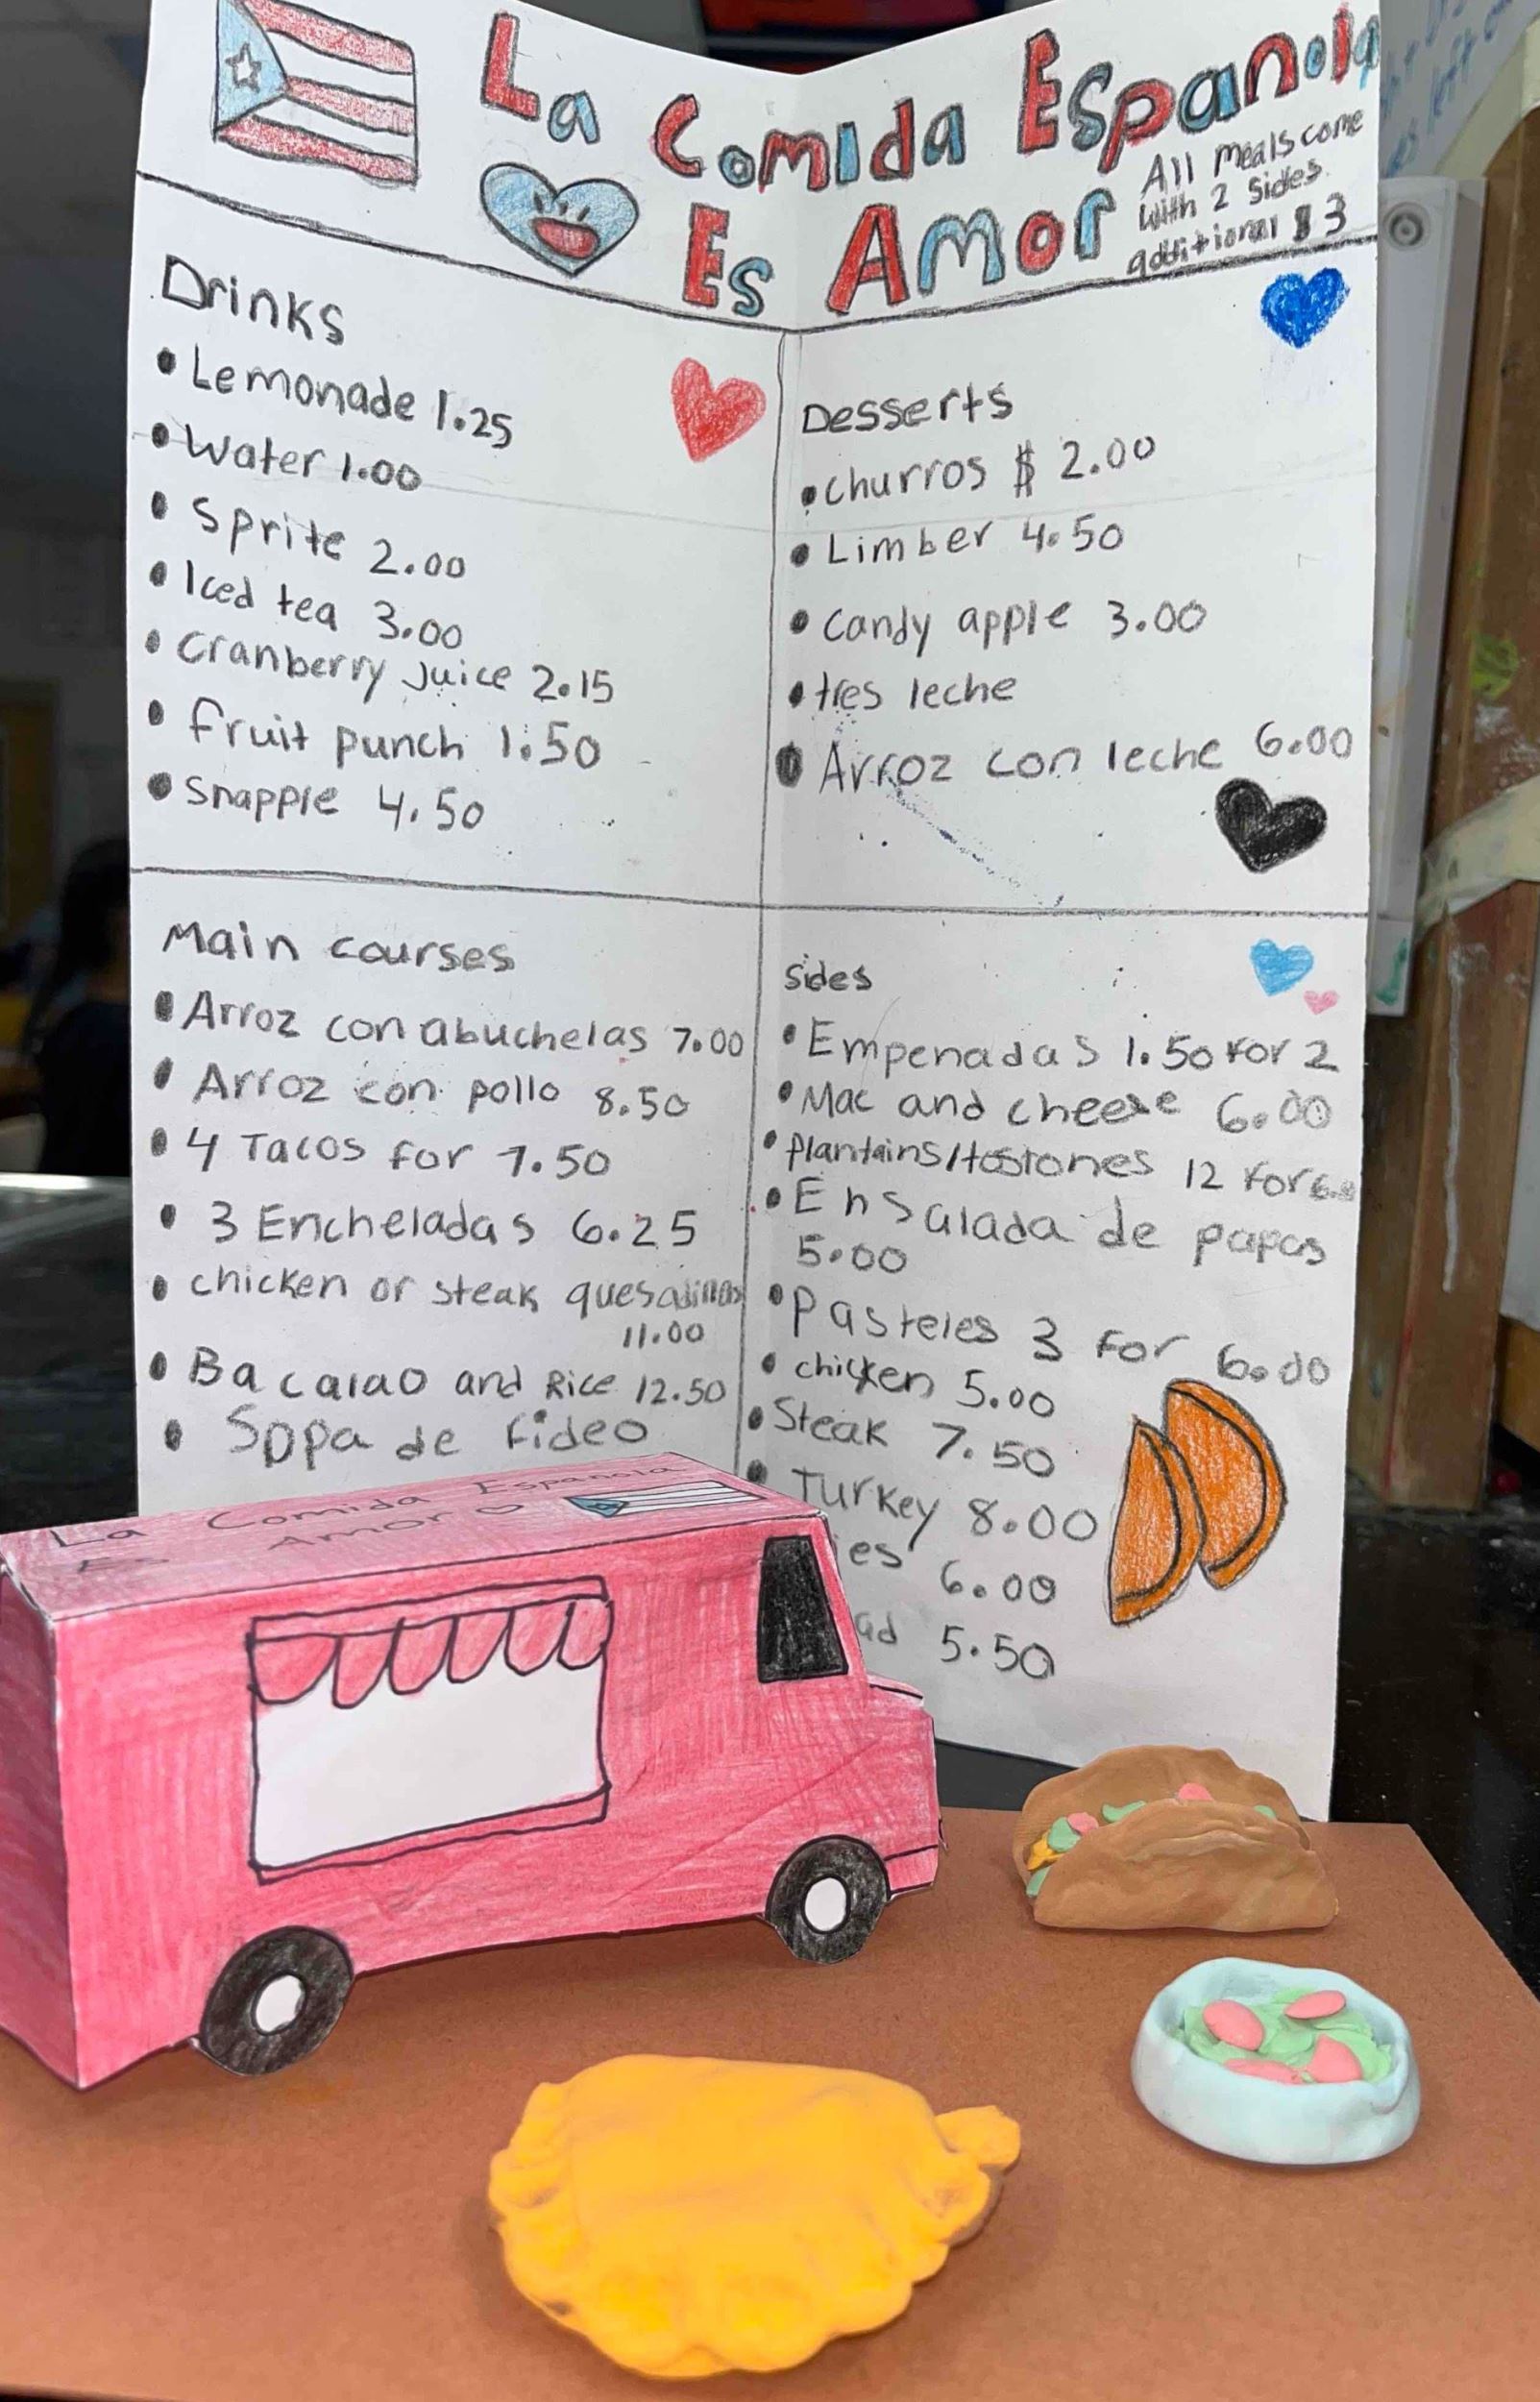 La Comida Espanola
Es Amor
All meals come
with 2 sides
additional $3
Drinks
• Lemonade 1.25
• Water 1.00
• Sprite 2.00
• Iced tea 3.00
• Cranberry Juice 2.15
• fruit punch 1.50
• Snapple 4.50
Desserts
• churros $ 2.00
• Limber 4.50
• Candy apple 3.00
• tres leche
• Arroz con leche 6.00
Main courses
• Arroz con abuchelas 7.00
• Arroz con pollo 8.50
• 4 Tacos for 7.50
• 3 Encheladas 6.25
• chicken or steak quesadillas
11.00
• Bacalao and Rice 12.50
• Sopa de fideo
Sides
• Empenadas 1.50 for 2
• Mac and cheese 6.00
• Plantains/tostones 12 for
• Ensalada de papas
5.00
• Pasteles 3 for 6.00
• chicken 5.00
• Steak 7.50
• Turkey 8.00
es 6.00
ad 5.50
La Comida Espanola
Es Amor